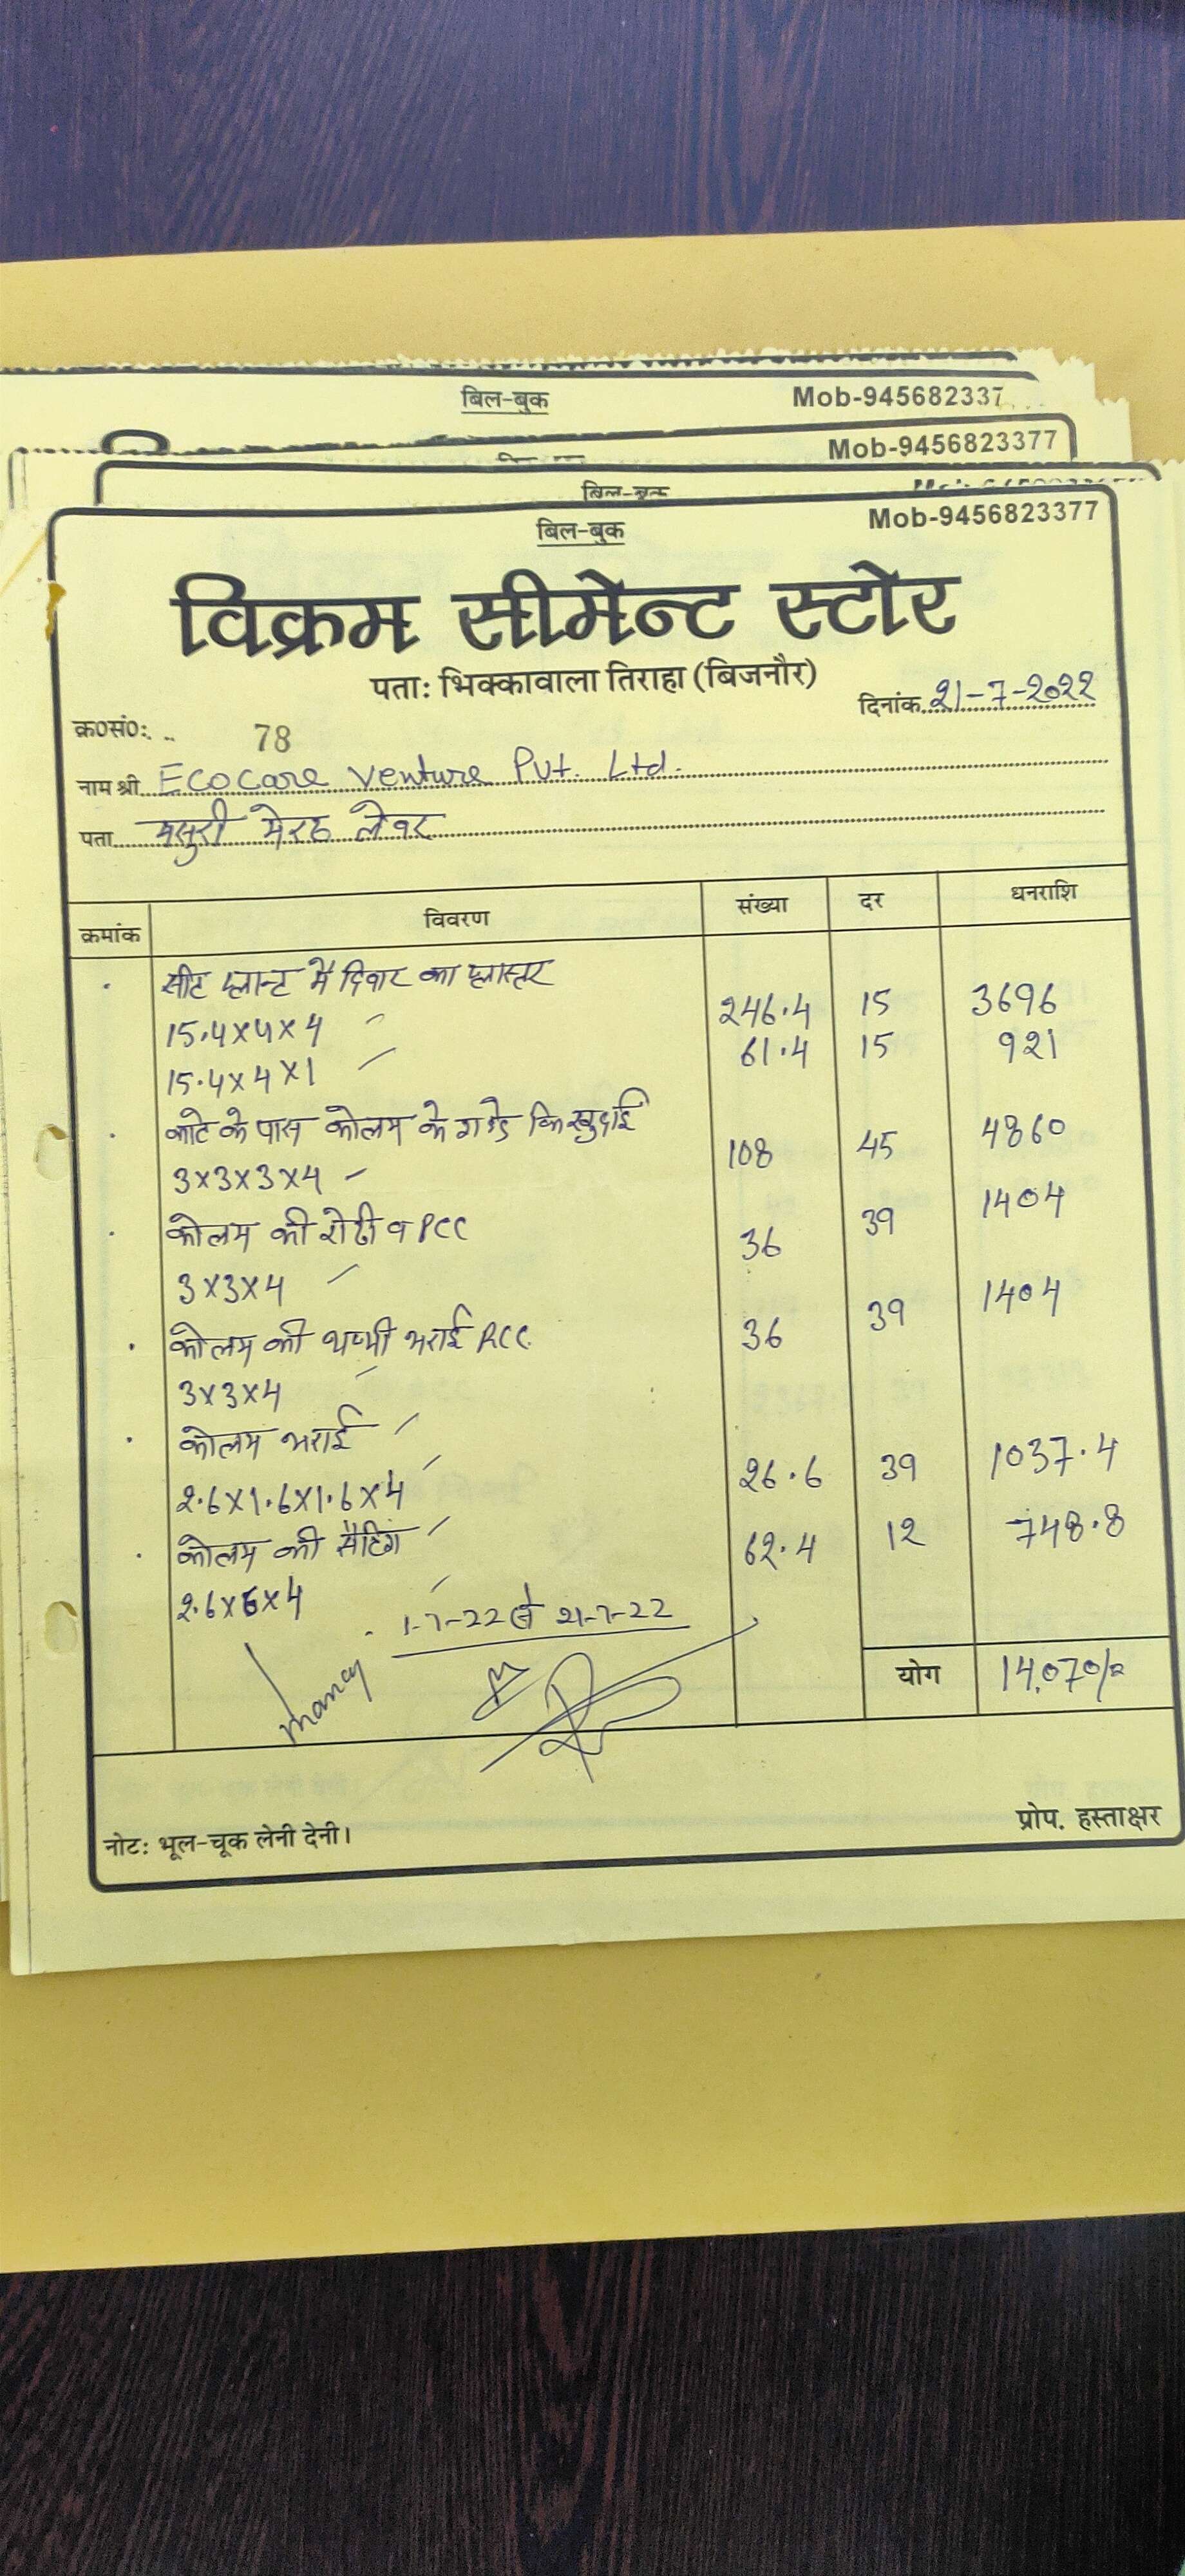 बिल-बुक Mob-945682337
Mob-9456823377
बिल-बुक
बिल-बुक Mob-9456823377
विक्रम सीमेन्ट स्टोर
पताः भिक्कावाला तिराहा (बिजनौर)
दिनांक 21-7-2022
क्र०सं०: 78
नाम श्री Ecocare Venture Pvt. Ltd.
पता मसुरी मेरठ लेवर
क्रमांक विवरण संख्या दर धनराशि
सीट प्लान्ट मै दिवार का प्लास्टर
15.4x4x4 246.4 15 3696
15.4x4x1 61.4 15 921
काटे के पास कोलम के गड्डे कि खुदाई
3x3x3x4 108 45 4860
कोलम की रोढी व PCC
3x3x4 36 39 1404
कोलम की थप्पी भराई RCC.
3x3x4 36 39 1404
कोलम भराई
2.6x1.6x1.6x4 26.6 39 1037.4
कोलम की सैटिंग
2.6x6x4 62.4 12 748.8
1-7-22 से 21-7-22
योग 14,070/=
प्रोप. हस्ताक्षर
नोटः भूल-चूक लेनी देनी।